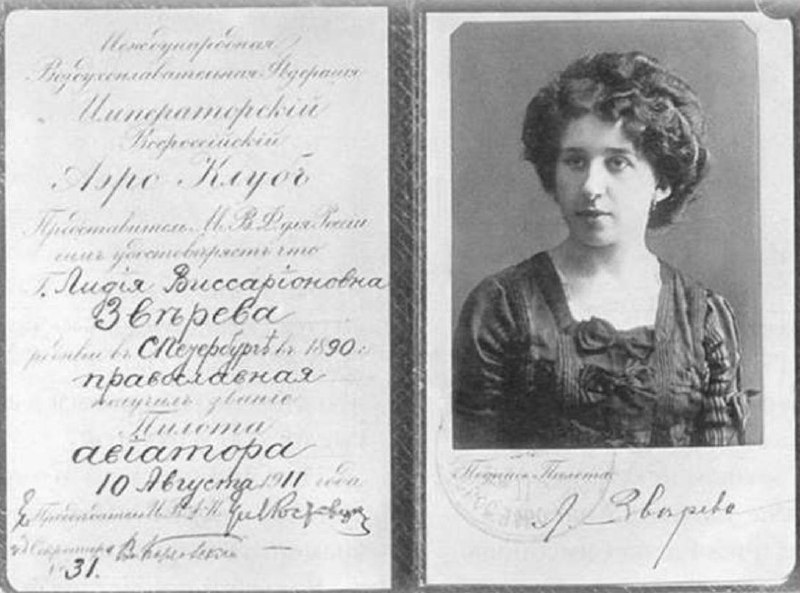 Международная
Воздухоплавательная Федерація
Императорскій
Всероссійскій
Аэро Клубъ
Представитель М. В. Ф. для Россіи
симъ удостовѣряетъ что
Г. Лидія Виссаріоновна
Звѣрева
въ СПетербургѣ въ 1890 г.
православная
получилъ званіе
Пилота
авіатора
10 Августа 1911 года
Председатель
Секретарь
31.
Подпись Пилота
Л. Звѣрева